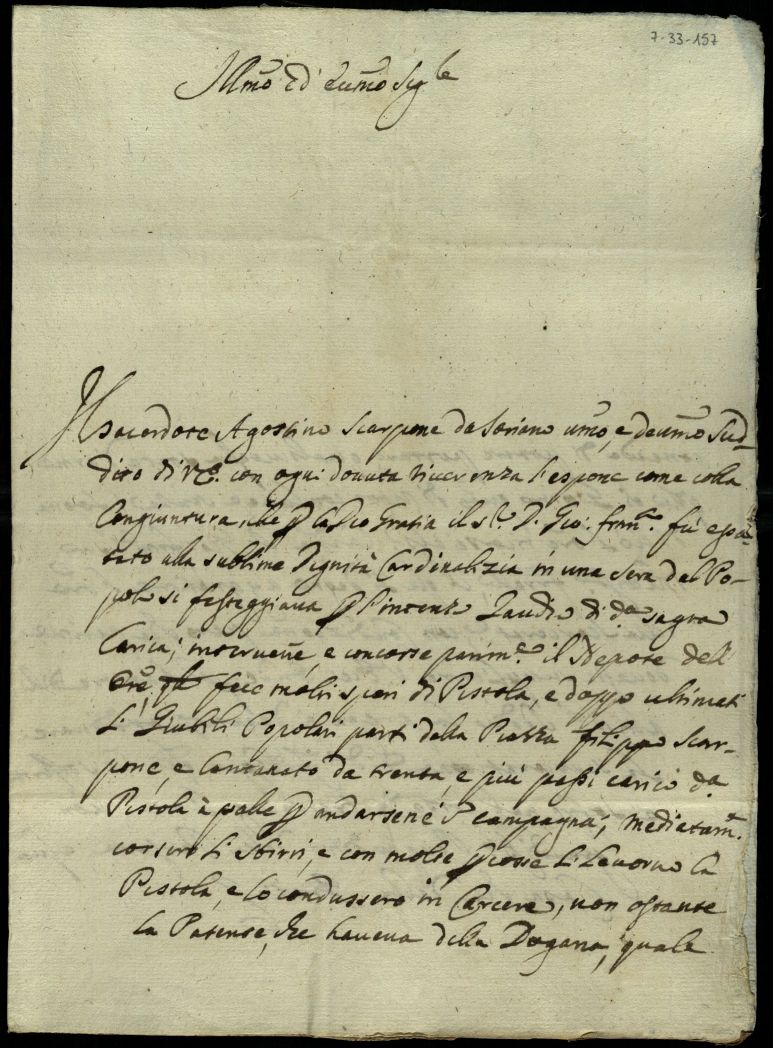 7-33-157
Illmõ ed Eccmõ Sigre
Il Sacerdote Agostino Scarpone da Soriano umõ, e devmõ Sud-
dito di V.E. con ogni dovuta riverenza l'espone come colla
Congiuntura, che p la Dio Gratia il Sr. D. Gio: franco. fù esal-
tato alla sublime Dignità Cardinalizia in una sera dal Po-
polo si festeggiava p l'intenso Gaudio di da. sagra
Carica; intervenne, e concorse parimte. il Nepote dell'
Ore, fece molti spari di Pistola, e doppo ultimati
li Giubili Popolari partì dalla Piazza filippo Scar-
pone, e lontanato da trenta, e più passi caricò da.
Pistola à palle p andarsene in campagna; mediatamte.
corsero li sbirri, e con molte pcosse li levorno la
Pistola, e lo condussero in Carcere, non ostante
la Patente, che haveva della Dogana, quale